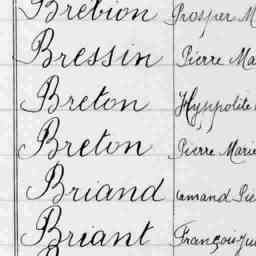 Brebion Prosper M
Bressin Pierre Ma
Breton Hyppolite
Breton Pierre Marie
Briand Armand Pie
Briant François Jul